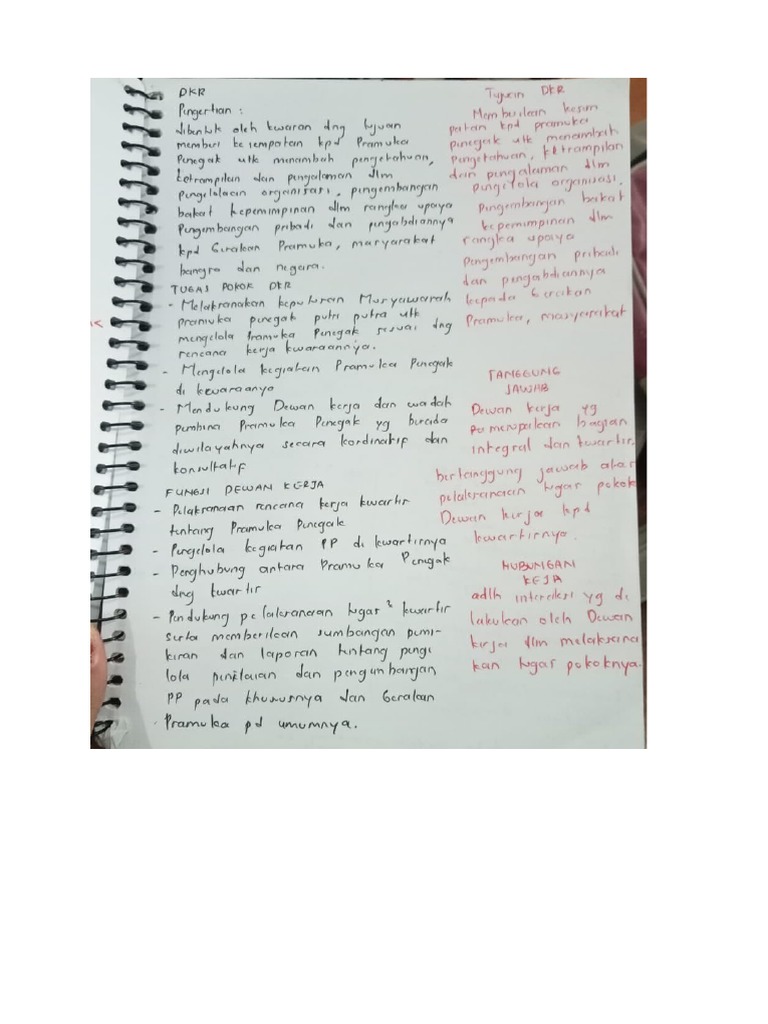 DKR
Pengertian :
dibentuk oleh kwaran dng tujuan
memberi kesempatan kpd Pramuka
Penegak utk menambah pengetahuan,
ketrampilan dan pengalaman dlm
pengelolaan organisasi, pengembangan
bakat kepemimpinan dlm rangka upaya
Pengembangan pribadi dan pengabdiannya
kpd Gerakan Pramuka, masyarakat
bangsa dan negara.
TUGAS POKOK DKR
- Melaksanakan keputusan Musyawarah
pramuka penegak putri putra utk
mengelola Pramuka Penegak sesuai dng
rencana kerja kwarannya.
- Mengelola kegiatan Pramuka Penegak
di kwarannya
- Mendukung Dewan kerja dan wadah
pembina Pramuka Penegak yg berada
diwilayahnya secara kordinatif dan
konsultatif
FUNGSI DEWAN KERJA
- Pelaksanaan rencana kerja kwartir
tentang Pramuka Penegak
- Pengelola kegiatan PP di kwartirnya
- Penghubung antara Pramuka Penegak
dng kwartir
- Pendukung pelaksanaan tugas² kwartir
serta memberikan sumbangan pemi-
kiran dan laporan tentang penge
lola penilaian dan pengembangan
PP pada khususnya dan Gerakan
Pramuka pd umumnya.
Tujuan DKR
Memberikan kesem
patan kpd pramuka
penegak utk menambah
Pengetahuan, ketrampilan
dan pengalaman dlm
pengelola organisasi,
Pengembangan bakat
kepemimpinan dlm
rangka upaya
Pengembangan pribadi
dan pengabdiannya
kepada Gerakan
Pramuka, masyarakat
TANGGUNG
JAWAB
Dewan kerja yg
merupakan bagian
integral dan kwartir.
bertanggung jawab atas
pelaksanaan tugas pokok
Dewan kerja kpd
kwartirnya.
HUBUNGAN
KEJA
adlh interaksi yg di
lakukan oleh Dewan
kerja dlm melaksana
kan tugas pokoknya.